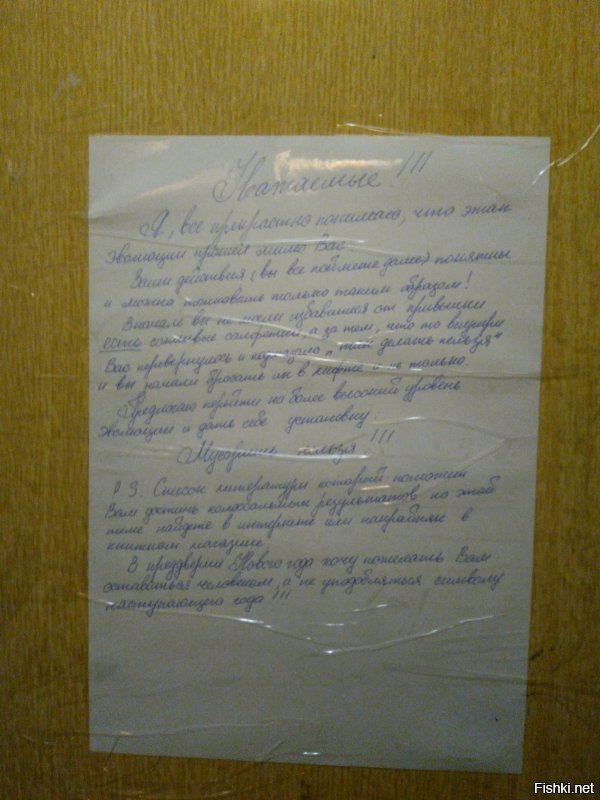 Уважаемые !!!
Я, все прекрастно понимаю, что этап
эволюции прошел мимо Вас.
Ваши действия (вы все поймете далее) понятны
и можно толковать только таким образом!
Вначале вы не могли избавиться от привычки
есть салфетки, а за тем, что то внутри
Вас перевернулось и подсказало „ так делать нельзя"
и вы начали бросать их в лифте и не только.
Предлагаю перейти на более высокий уровень
эволюции и дать себе установку.
Мусорить нельзя !!!
P.S. Список литературы который поможет
Вам достичь колосальных результатов на этой
теме найдете в интернете или накрайняк в
книжном магазине.
В преддверии Нового года хочу пожелать Вам
оставаться человеком, а не уподобляться символу
наступающего года !!!
Fishki.net